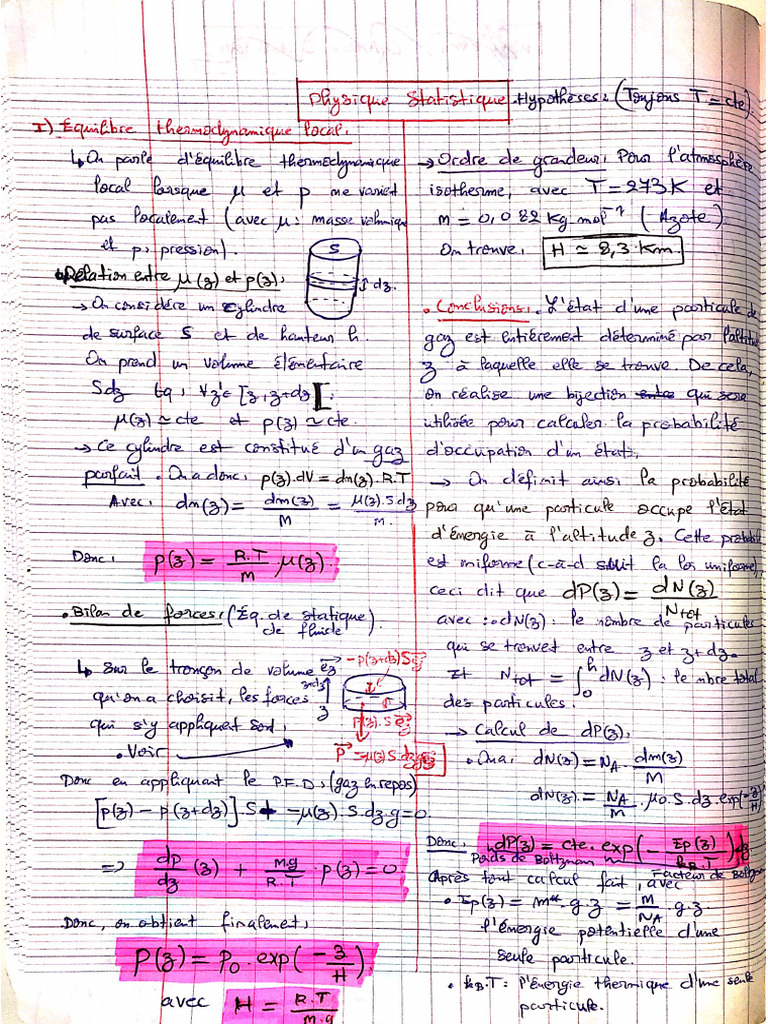 Physique Statistique. Hypothèses: (Toujours T = cte).
I) Équilibre thermodynamique local.
↳ On parle d'équilibre thermodynamique
local lorsque μ et p ne varient
pas localement (avec μ: masse volumique
et p, pression).
• Relation entre μ(z) et p(z).
→ On considère un cylindre
de surface S et de hauteur h.
On prend un volume élémentaire
Sdz tq, ∀z'∈ [z, z+dz[:
μ(z) ≃ cte et p(z) ≃ cte.
→ Ce cylindre est constitué d'un gaz
parfait. On a donc, p(z).dV = dn(z).R.T
Avec, dn(z) = dm(z)/M = μ(z).S.dz/M.
Donc, p(z) = R.T/M . μ(z).
• Bilan de forces: (Éq. de statique
de fluide).
↳ Sur le tronçon de volume
qu'on a choisit, les forces
qui s'y appliquent sont,
• Voir
S
dz.
ez
-p(z+dz)S ez
z+dz
z
p(z).S ez
P = -μ(z)S.dz g ez
Donc en appliquant le P.F.D, (gaz en repos)
[p(z) - p(z+dz)].S + -μ(z).S.dz.g = 0.
⇒ dp/dz (z) + M.g/R.T . p(z) = 0.
Donc, on obtient finalement,
P(z) = P0 . exp(-z/H).
avec H = R.T/M.g
→ Ordre de grandeur: Pour l'atmosphère
isotherme, avec T = 273 K et
m = 0,082 Kg mol⁻¹ (Azote)
On trouve, H ≃ 8,3 Km.
• Conclusions: L'état d'une particule de
gaz est entièrement déterminé par l'altitude
z à laquelle elle se trouve. De cela,
on réalise une bijection entre qui sera
utilisée pour calculer la probabilité
d'occupation d'un état.
→ On définit ainsi la probabilité
pour qu'une particule occupe l'état
d'énergie à l'altitude z. Cette probabi
est uniforme (c-à-d suit la loi uniforme),
ceci dit que dP(z) = dN(z)/Ntot
avec: • dN(z): le nombre de particules
qui se trouvet entre z et z+dz.
et Ntot = ∫₀ʰ dN(z): le nbre total
des particules.
→ Calcul de dP(z),
• On a, dN(z) = NA . dm(z)/M
dN(z) = NA/M . μ0.S.dz.exp(-z/H)
Donc, dP(z) = cte. exp(- Ep(z)/kB.T) dz
Poids de Boltzmann Facteur de Boltzm
Après tout calcul fait, avec
• Ep(z) = m*.g.z = M/NA .g.z.
l'énergie potentielle d'une
seule particule.
• kB.T: l'énergie thermique d'une seule
particule.